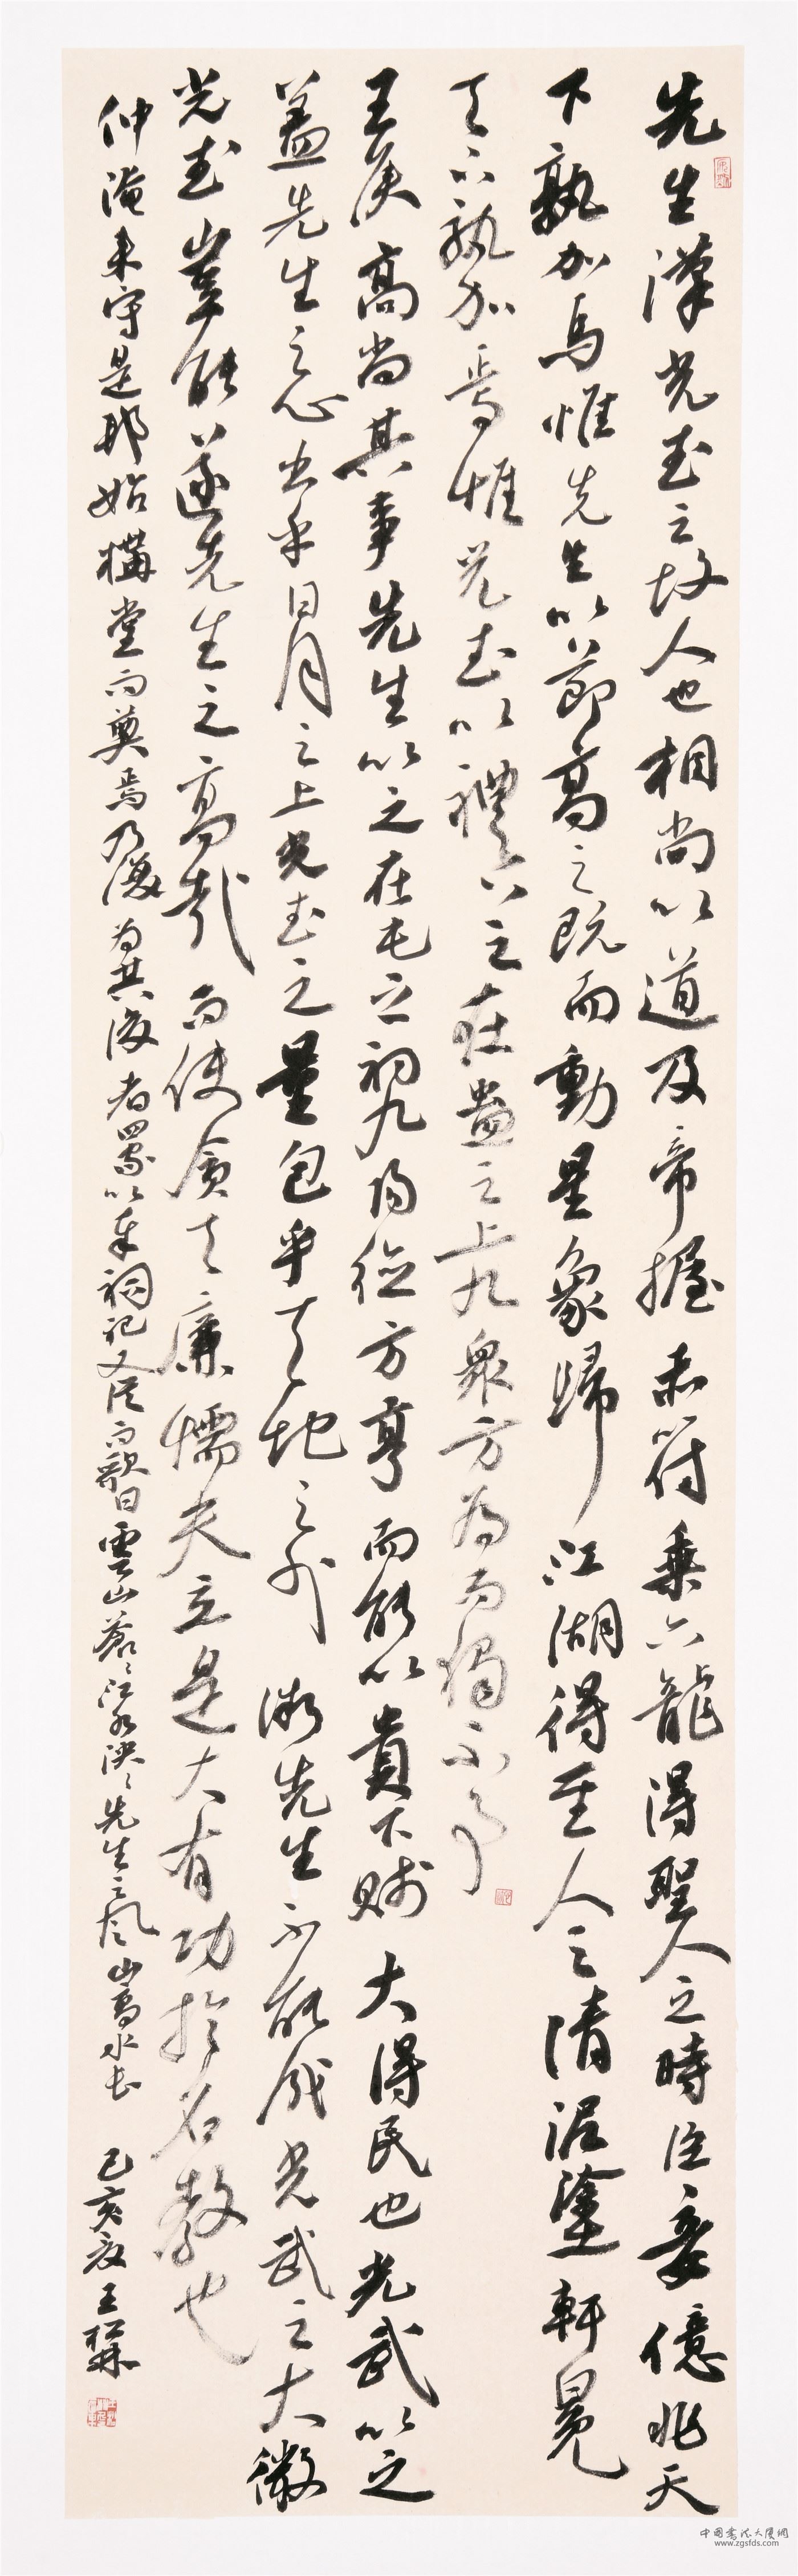 先生漢光武之故人也相尚以道及帝握赤符乘六龍得聖人之時臣妾億兆天
下孰加焉惟先生以節高之既而動星象歸江湖得聖人之清泥塗軒冕
天下孰加焉惟光武以禮下之在蠱之上九衆方為而獨不事
王侯高尚其事先生以之在屯之初九陽德方亨而能以貴下賤大得民也光武以之
蓋先生之心出乎日月之上光武之量包乎天地之外微先生不能成光武之大微
光武豈能遂先生之高哉而使貪夫廉懦夫立是大有功於名教也
仲淹来守是邦始構堂而奠焉乃復為其後者四家以奉祠祀又從而歌曰雲山蒼々江水泱々先生之風山高水長 己亥夏王
中国書法大厦網
www.zgsfds.com